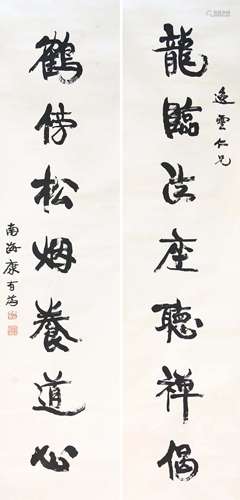 逸雲仁兄
龍臨法座聽禪偈
鶴傍松烟養道心
南海康有為